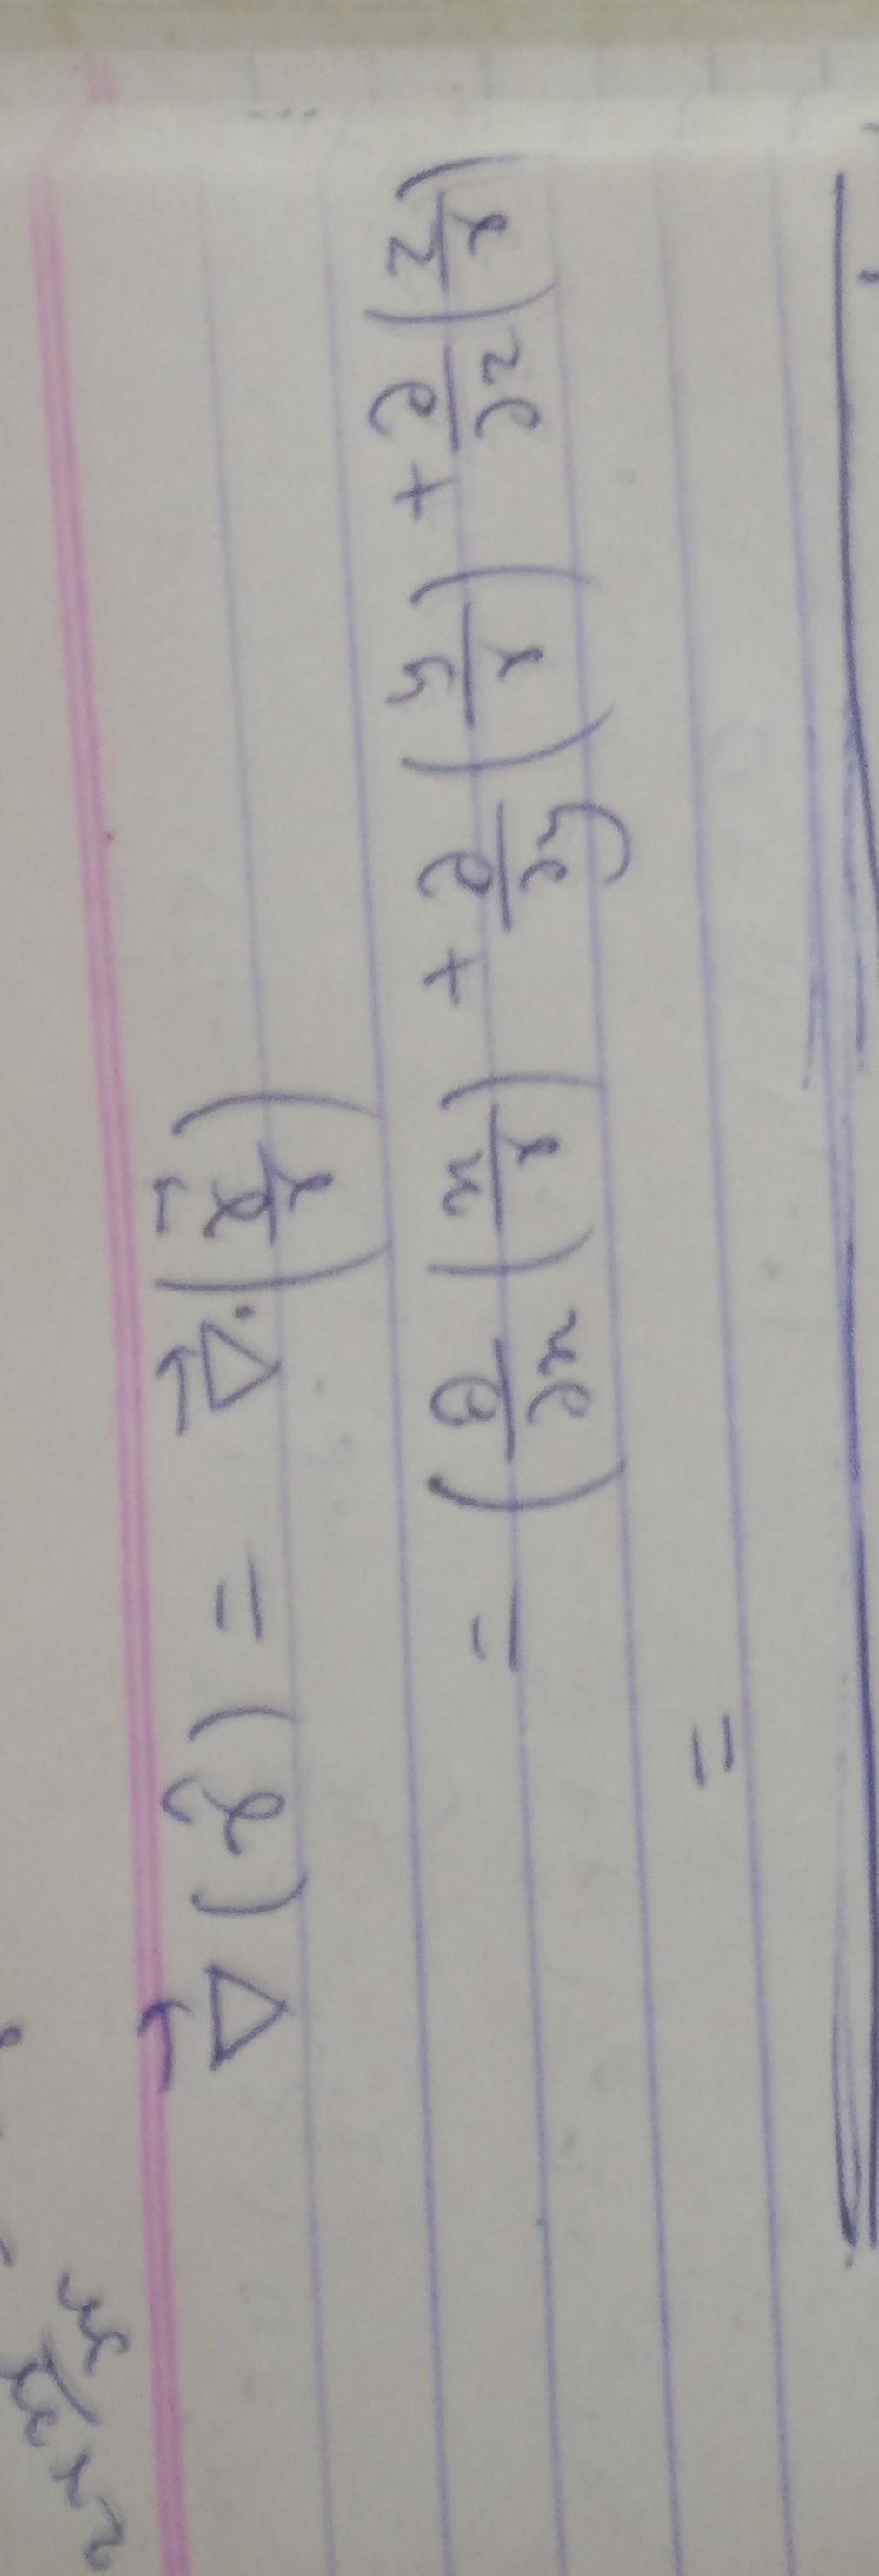 ∇⃗ (r̂) = ∇⃗·(r⃗/r)
= (∂/∂x (x/r) + ∂/∂y (y/r) + ∂/∂z (z/r)
=